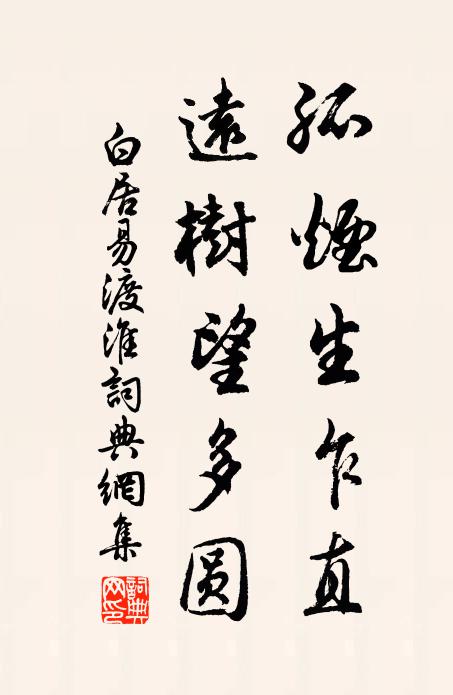 孤煙生乍直
遠樹望多圆
白居易渡淮詞典網集
詞典網印